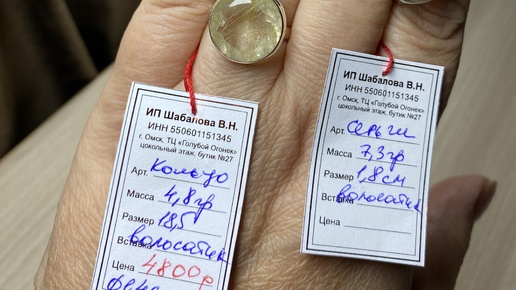 ИП Шабалова В.Н.
ИНН 550601151345
г. Омск, ТЦ «Голубой Огонек»
цокольный этаж, бутик №27
Арт. Кольцо
Масса 4,8гр
Размер 18,5
Вставка волосатик
Цена 4800р
ИП Шабалова В.Н.
ИНН 550601151345
г. Омск, ТЦ «Голубой Огонек»
цокольный этаж, бутик №27
Арт. Серьги
Масса 7,3гр
Размер 1,8см
Вставка волосатик
Цена